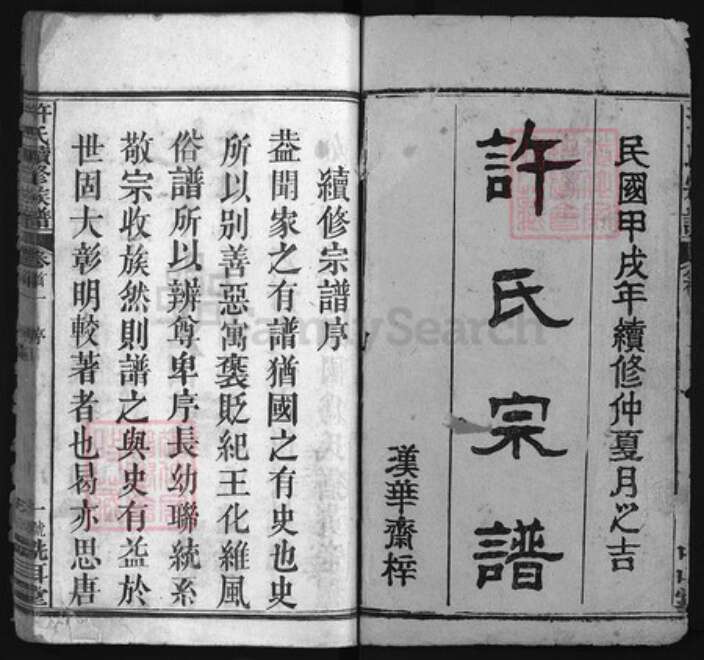 民國甲戌年續修仲夏月之吉
許氏宗譜
漢華齋梓
續修宗譜序
蓋聞家之有譜猶國之有史也史
所以別善惡寓褒貶紀王化維風
俗譜所以辨尊卑序長幼聯統系
敬宗收族然則譜之與史有益於
世固大彰明較著者也曷亦思唐
許氏續修族譜
卷首一
序
一號
洗耳堂
FamilySearch